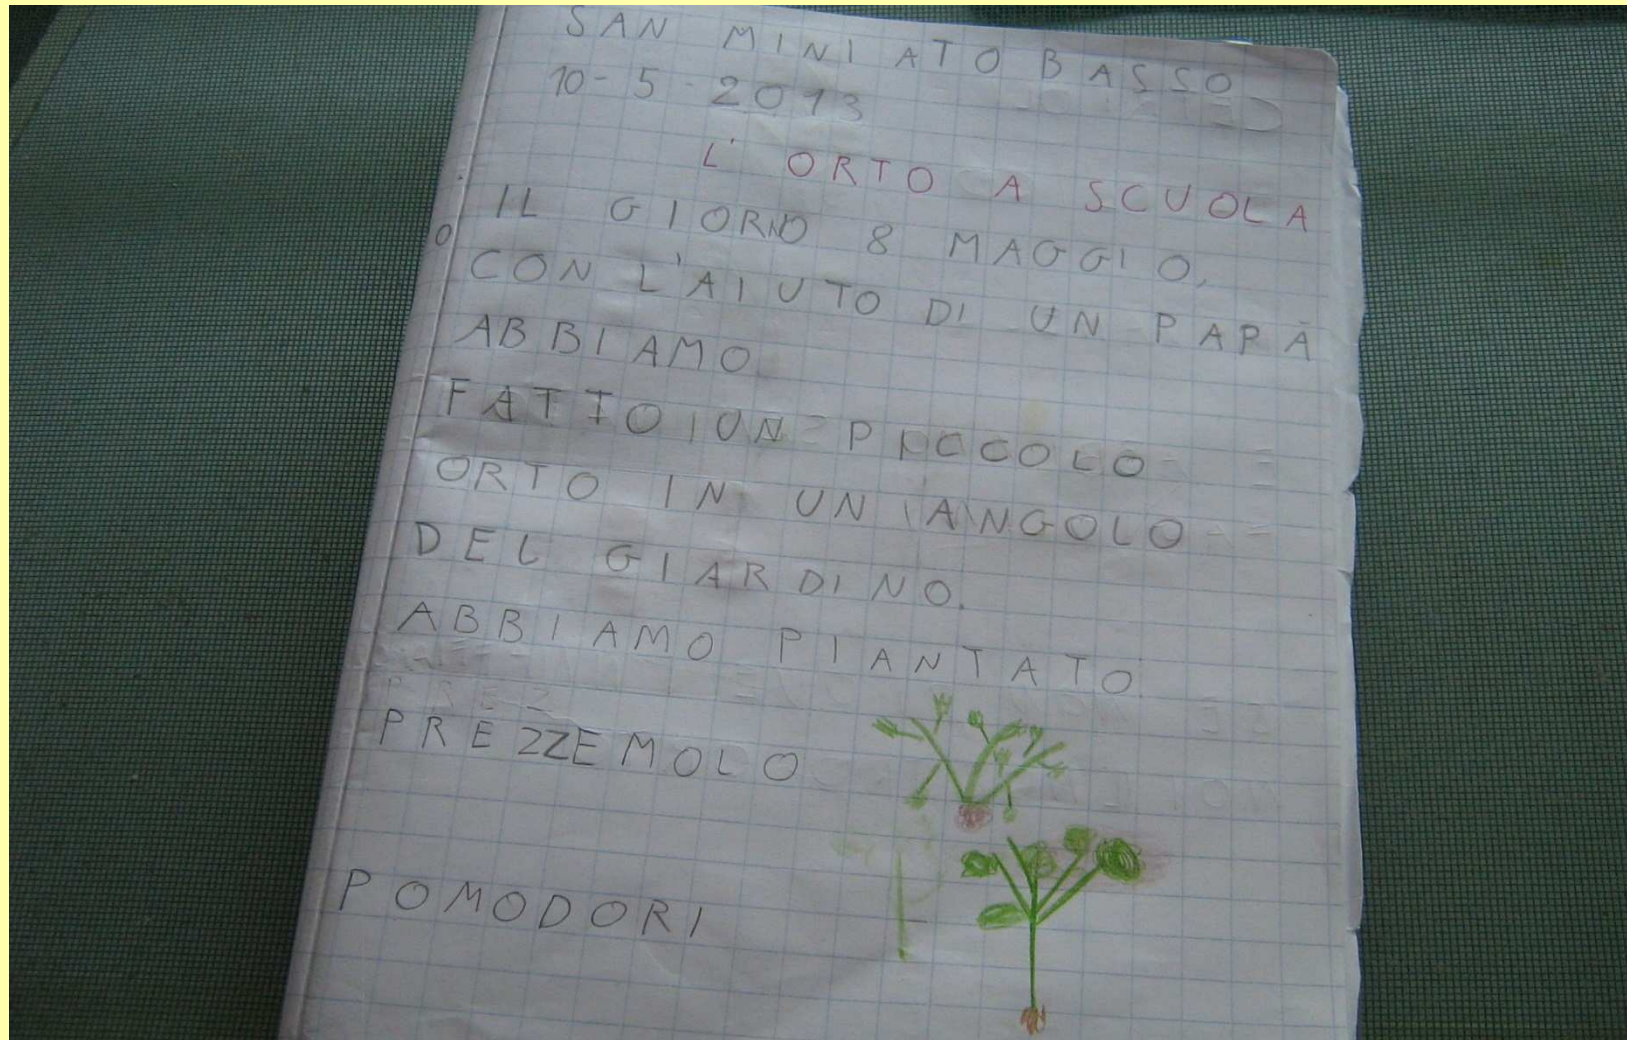 SAN MINIATO BASSO
10-5-2013
L'ORTO A SCUOLA
IL GIORNO 8 MAGGIO,
CON L'AIUTO DI UN PAPÀ
ABBIAMO
FATTO UN PICCOLO
ORTO IN UN ANGOLO
DEL GIARDINO.
ABBIAMO PIANTATO
PREZZEMOLO
POMODORI